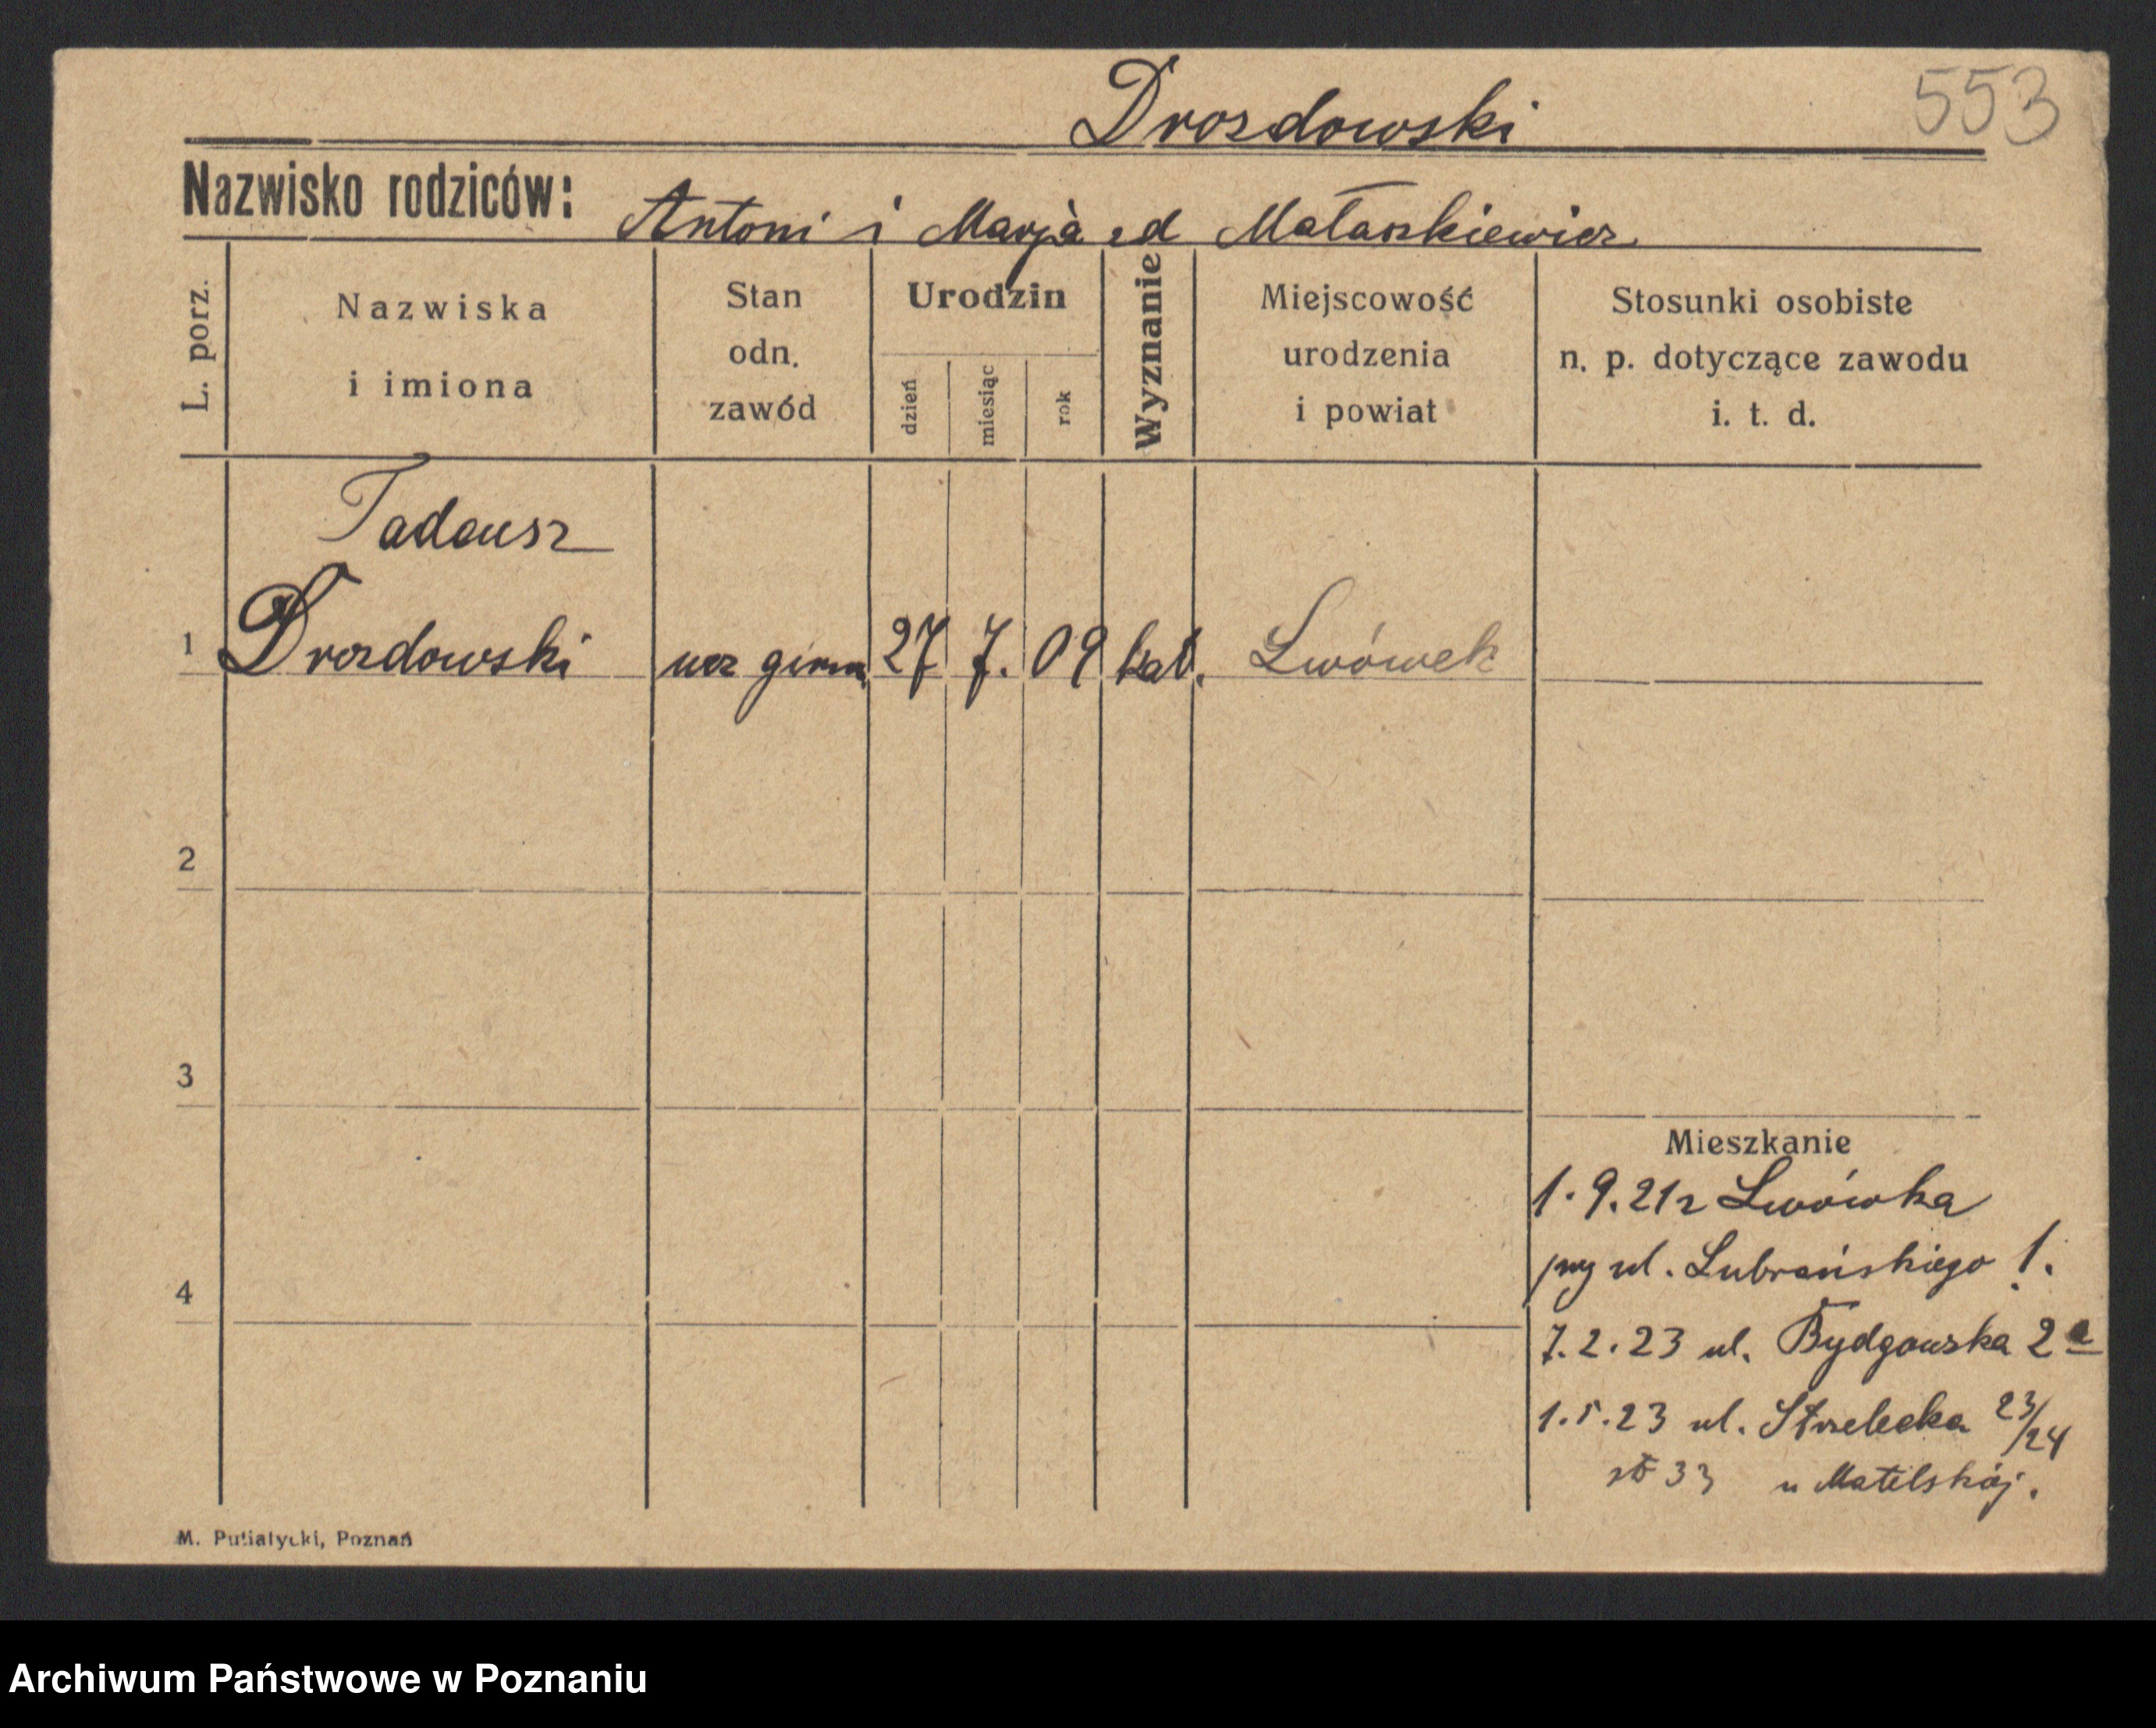 Drozdowski 553
Nazwisko rodziców: Antoni i Marja
L. porz.
Nazwiska
i imiona
Stan
odn.
zawód
Urodzin
dzień
miesiąc
rok
Wyznanie
Miejscowość
urodzenia
i powiat
Stosunki osobiste
n. p. dotyczące zawodu
i. t. d.
Tadeusz
1 Drozdowski ucz gimn 27 7. 09 kat. Lwówek
2
3
Mieszkanie
1.9.21 z Lwówka
przy ul. Lubrańskiego 1.
4
7.2.23 ul. Bydgowska 2a
1.5.23 ul. Strzelecka 23/24
33 u
M. Putiatycki, Poznań
Archiwum Państwowe w Poznaniu